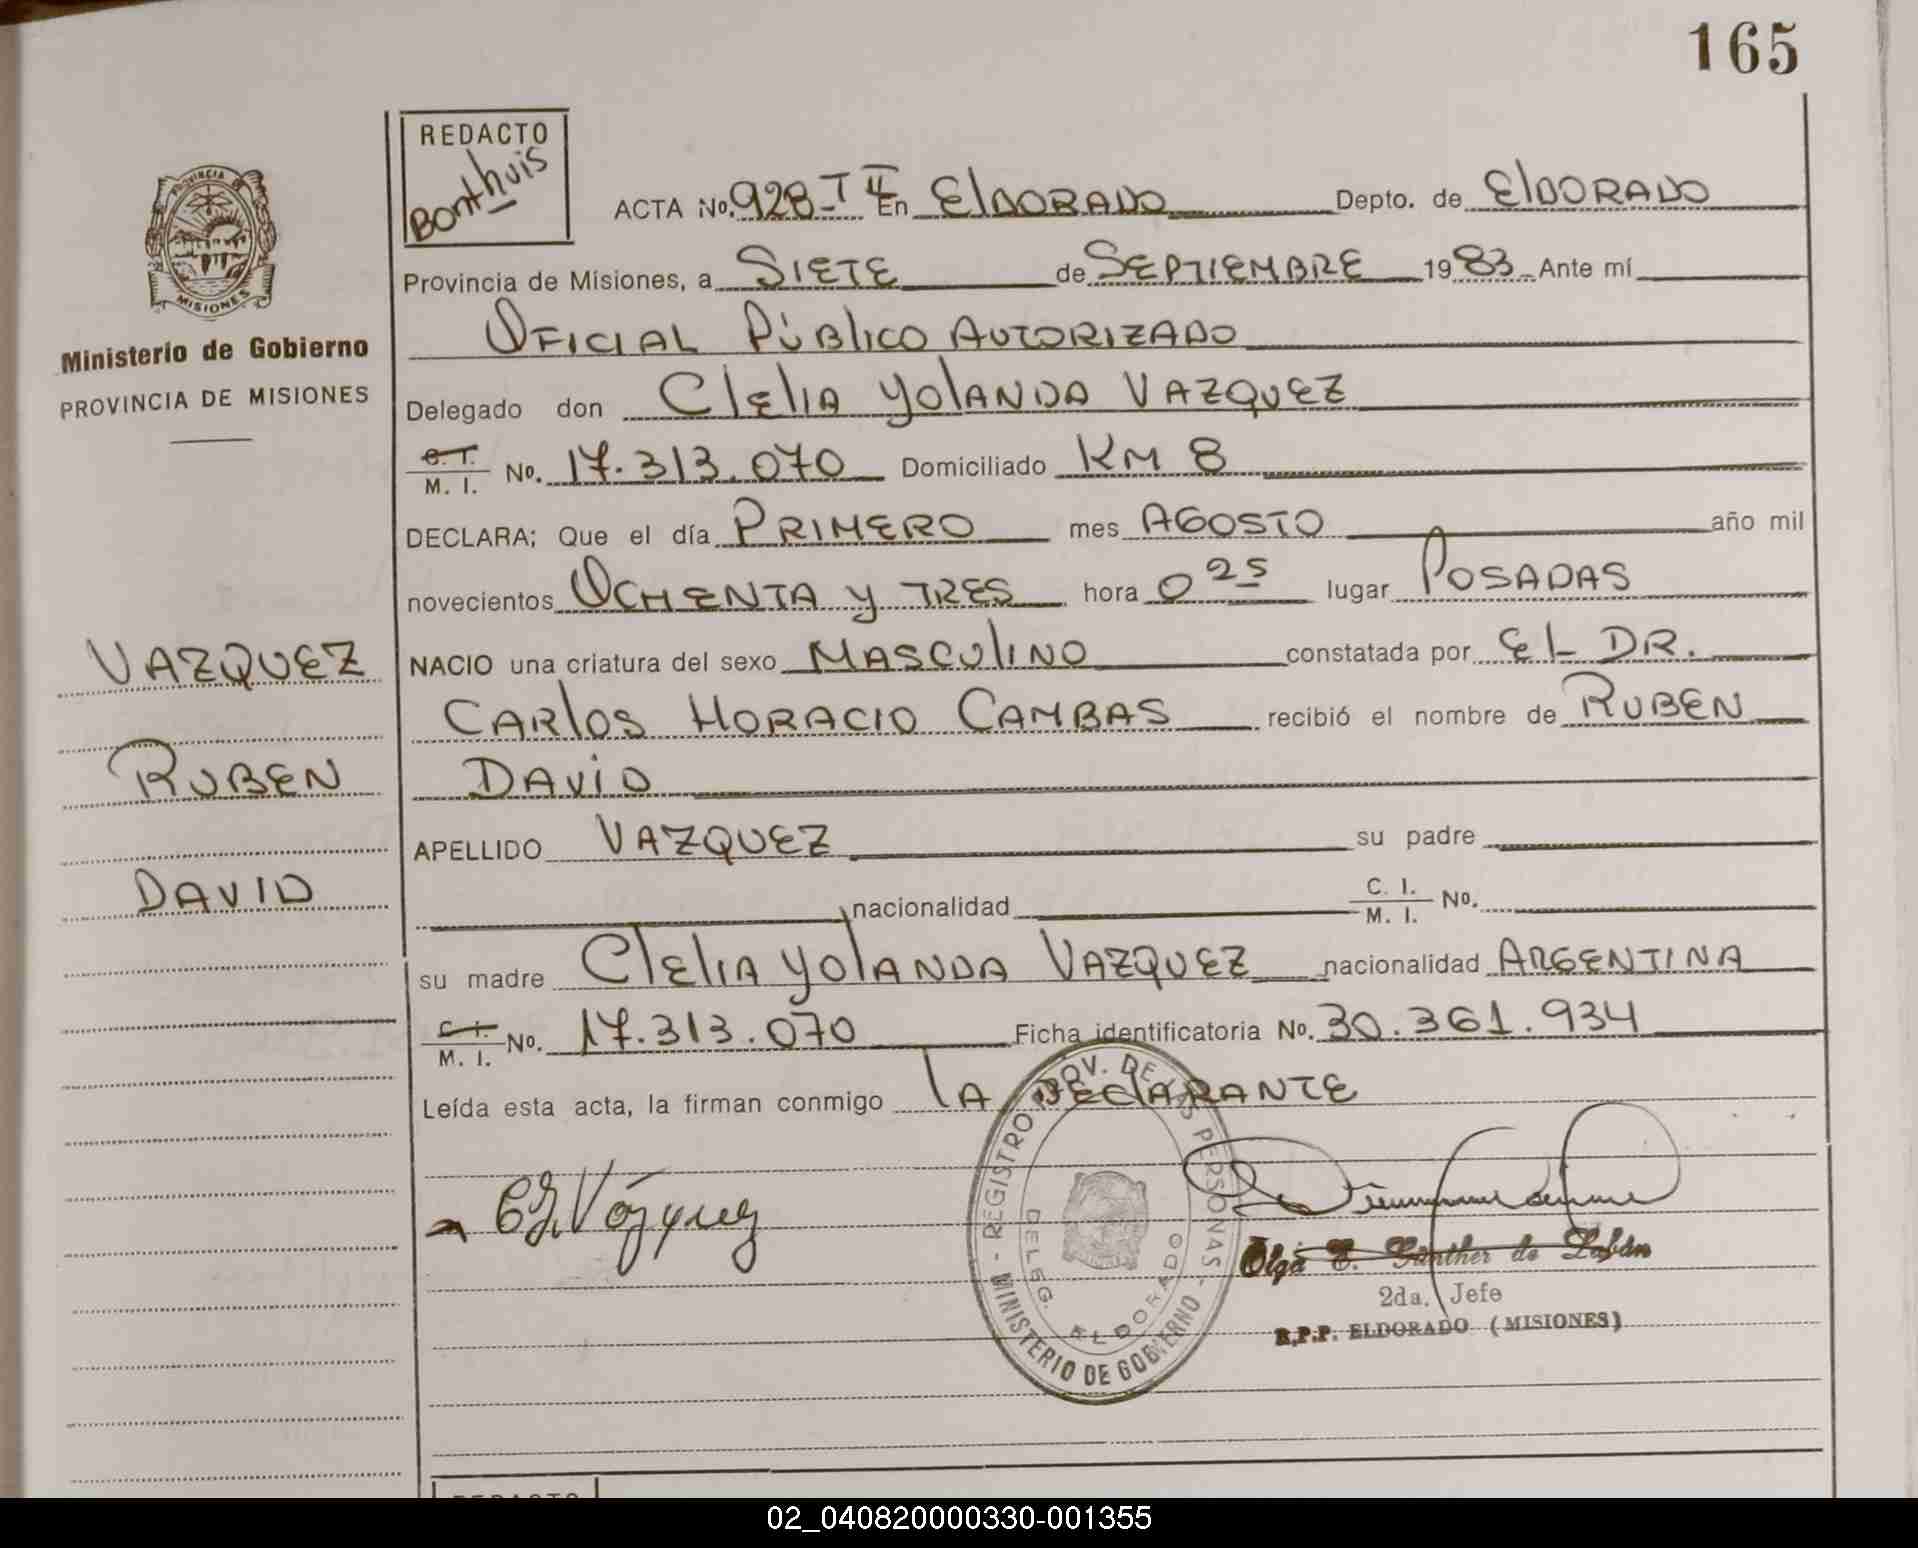 165
REDACTO
Bonthuis
PROVINCIA DE
MISIONES
Ministerio de Gobierno
PROVINCIA DE MISIONES
ACTA No. 928-T II En ElDORADO Depto. de ElDORADO
Provincia de Misiones, a SIETE de SEPTIEMBRE 1983 Ante mí
OFICIAL PÚBlICO AUTORIZADO
Delegado don ClElIA YOlANDA VAZQUEZ
C. I. M. I. No. 17.313.070 Domiciliado KM 8
DECLARA; Que el día PRIMERO mes AGOSTO año mil
novecientos OCHENTA Y TRES hora 0 25 lugar POSADAS
NACIO una criatura del sexo MASCUlINO constatada por El DR.
CARlOS HORACIO CAMBAS recibió el nombre de RUBEN
DAViD
APELLIDO VAZQUEZ su padre
nacionalidad C. I. M. I. No.
su madre ClElIA YOlANDA VAZQUEZ nacionalidad ARGENTINA
C. I. M. I. No. 17.313.070 Ficha identificatoria No. 30.361.934
Leída esta acta, la firman conmigo lA DEClARANTE
VAZQUEZ
RUBEN
DAVID
REGISTRO PROV. DE LAS PERSONAS - MINISTERIO DE GOBIERNO -
DELEG. ELDORADO
Vázquez
Olga E. Gunther de
2da. Jefe
R.P.P. ELDORADO (MISIONES)
REDACTO
02_040820000330-001355